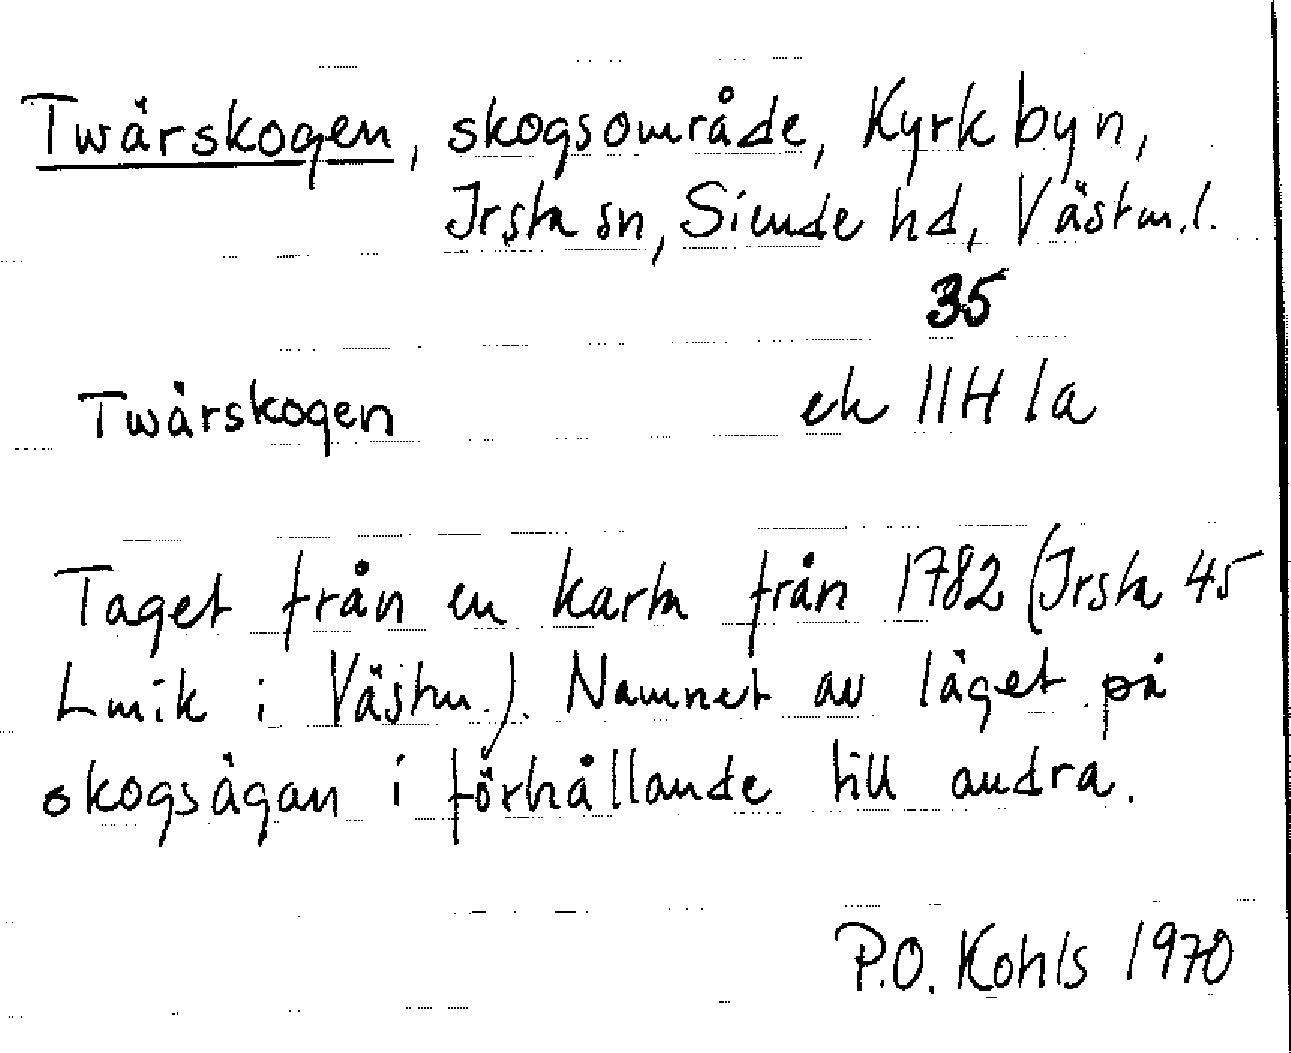 Twärskogen, skogsområde, Kyrkbyn,
Irsta sn, Siende hd, Västm.l.
35
Twärskogen ek 11H 1a
Taget från en karta från 1782 (Irsta 45
Lmik i Västm.). Namnet av läget på
skogsägan i förhållande till andra.
P.O. Kohls 1970